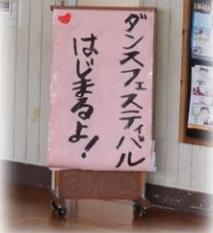 ダンスフェスティバル
はじまるよ！